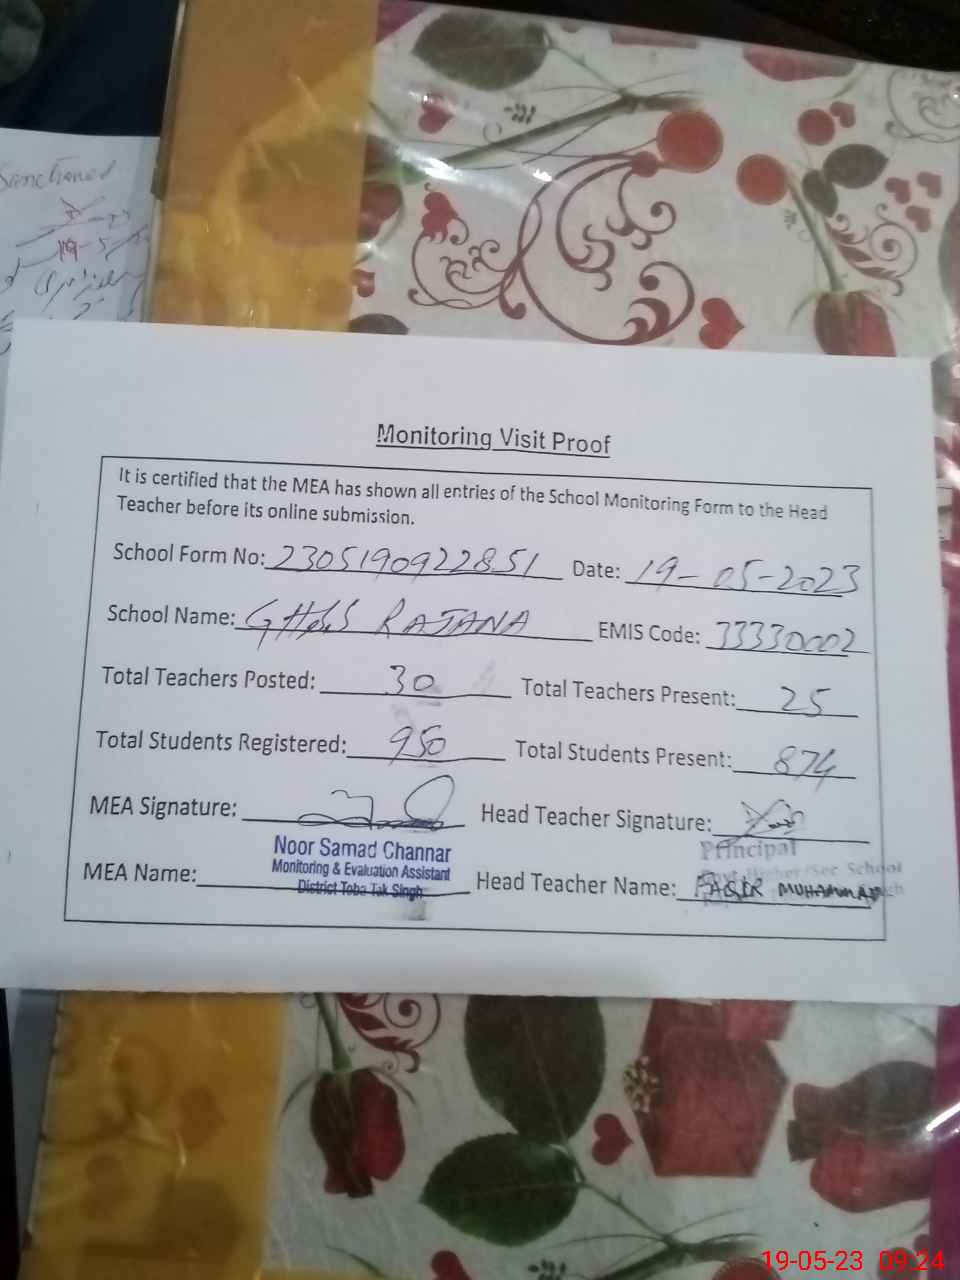 Sanctioned
Monitoring Visit Proof
It is certified that the MEA has shown all entries of the School Monitoring Form to the Head
Teacher before its online submission.
School Form No: 2305190922851 Date: 19-05-2023
School Name: GHSS RAJANA EMIS Code: 33330002
Total Teachers Posted: 30 Total Teachers Present: 25
Total Students Registered: 950 Total Students Present: 874
MEA Signature: Head Teacher Signature:
Noor Samad Channar
Monitoring & Evaluation Assistant
District Toba Tak Singh
Principal
Govt. Higher Sec. School
MEA Name: Head Teacher Name: MUHAMMAD
19-05-23 09:24